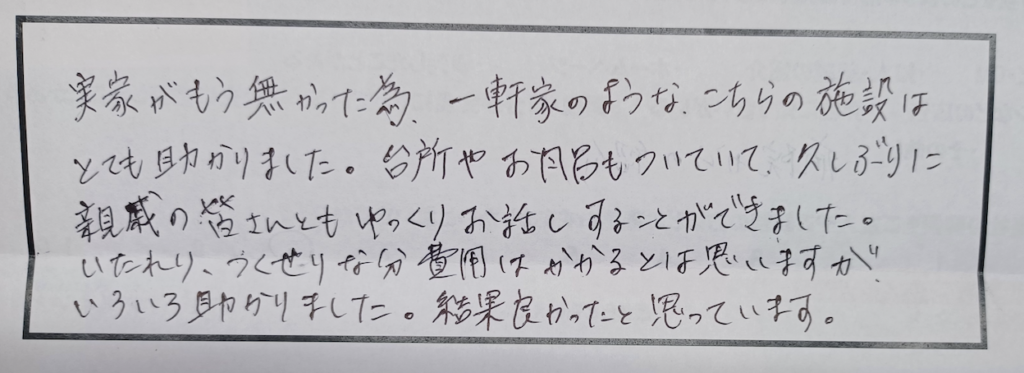 実家がもう無かった為、一軒家のような、こちらの施設は
とても助かりました。台所や お風呂もついていて、久しぶりに
親戚の皆さんとも ゆっくり お話しすることができました。
いたれり、つくせりな分 費用は かかるとは思いますが、
いろいろ助かりました。結果良かったと思っています。